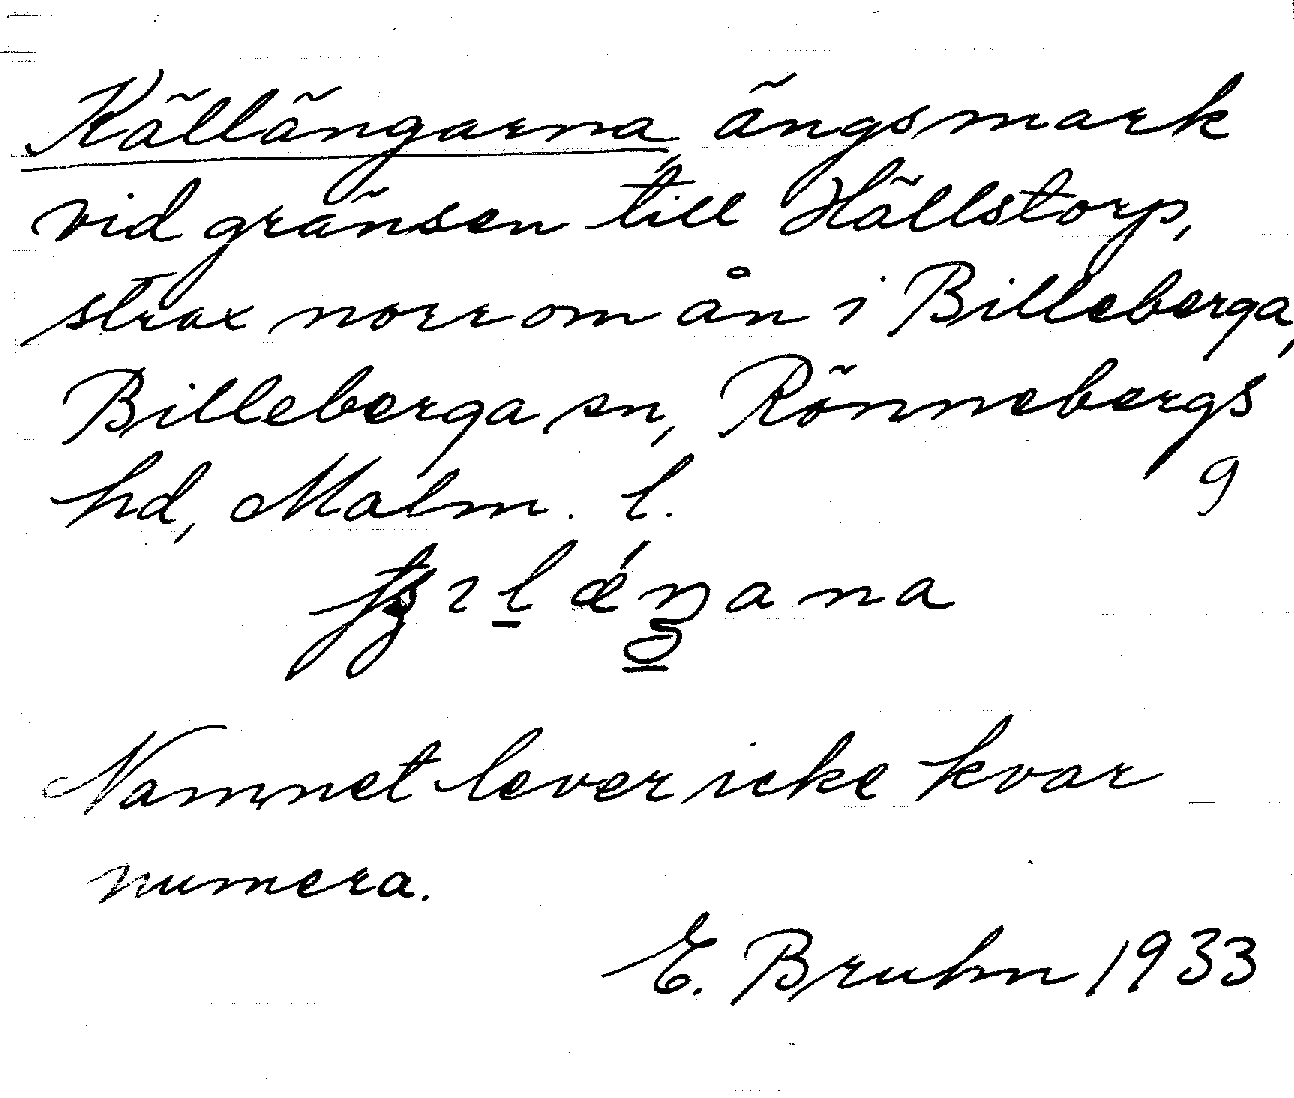 Källängarna ängsmark
vid gränsen till Hällstorp,
strax norr om ån i Billeberga,
Billeberga sn, Rönnebergs
hd, Malm. l. 9
Namnet lever icke kvar
numera.
E. Bruhn 1933